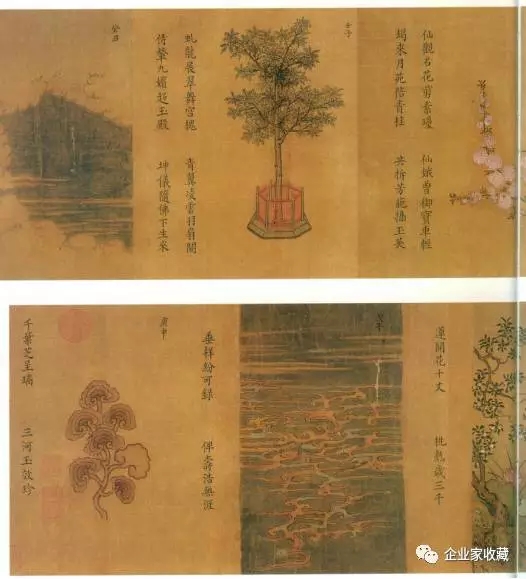 仙觀名花剪素瓊 仙娥曾御寶車輕
朅來月苑陪青桂 共折芳葩播玉英
壬子
虬龍展翠舞宮槐 青翼凌雲羽扇開
倚輦九嬪趨玉殿 坤儀隨佛下生來
癸丑
蓮開花十丈 桃熟歲三千
垂祥紛可錄 俾壽浩無涯
庚申
千葉芝呈瑞 三河玉效珍
企业家收藏